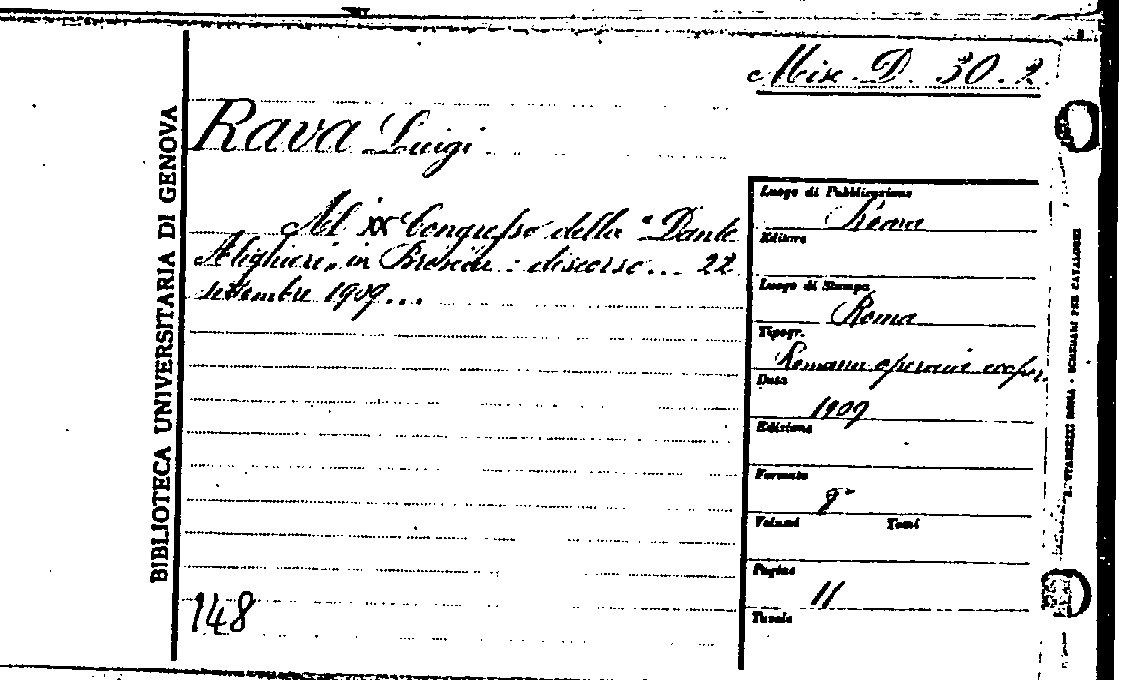 Misc. D. 30.2
BIBLIOTECA UNIVERSITARIA DI GENOVA
Rava Luigi
Al XX Congresso della "Dante
Alighieri" in Brescia: discorso... 22
settembre 1909...
148
Luogo di Pubblicazione
Roma
Editore
Luogo di Stampa
Roma
Tipogr.
Romana operaia cooper.
Data
1909
Edizione
Formato
8°
Volumi Tomi
Pagine
11
Tavole
STADERINI ROMA - SCHEDARI PER CATALOGHI